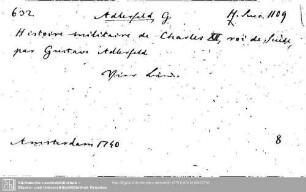 632 Adlerfeld, G. H. Suec. 1109
Histoire militaire de Charles XII, roi de Suède,
par Gustave Adlerfeld.
Amsterdam 1740 8
Sächsische Landesbibliothek -
Staats- und Universitätsbibliothek Dresden